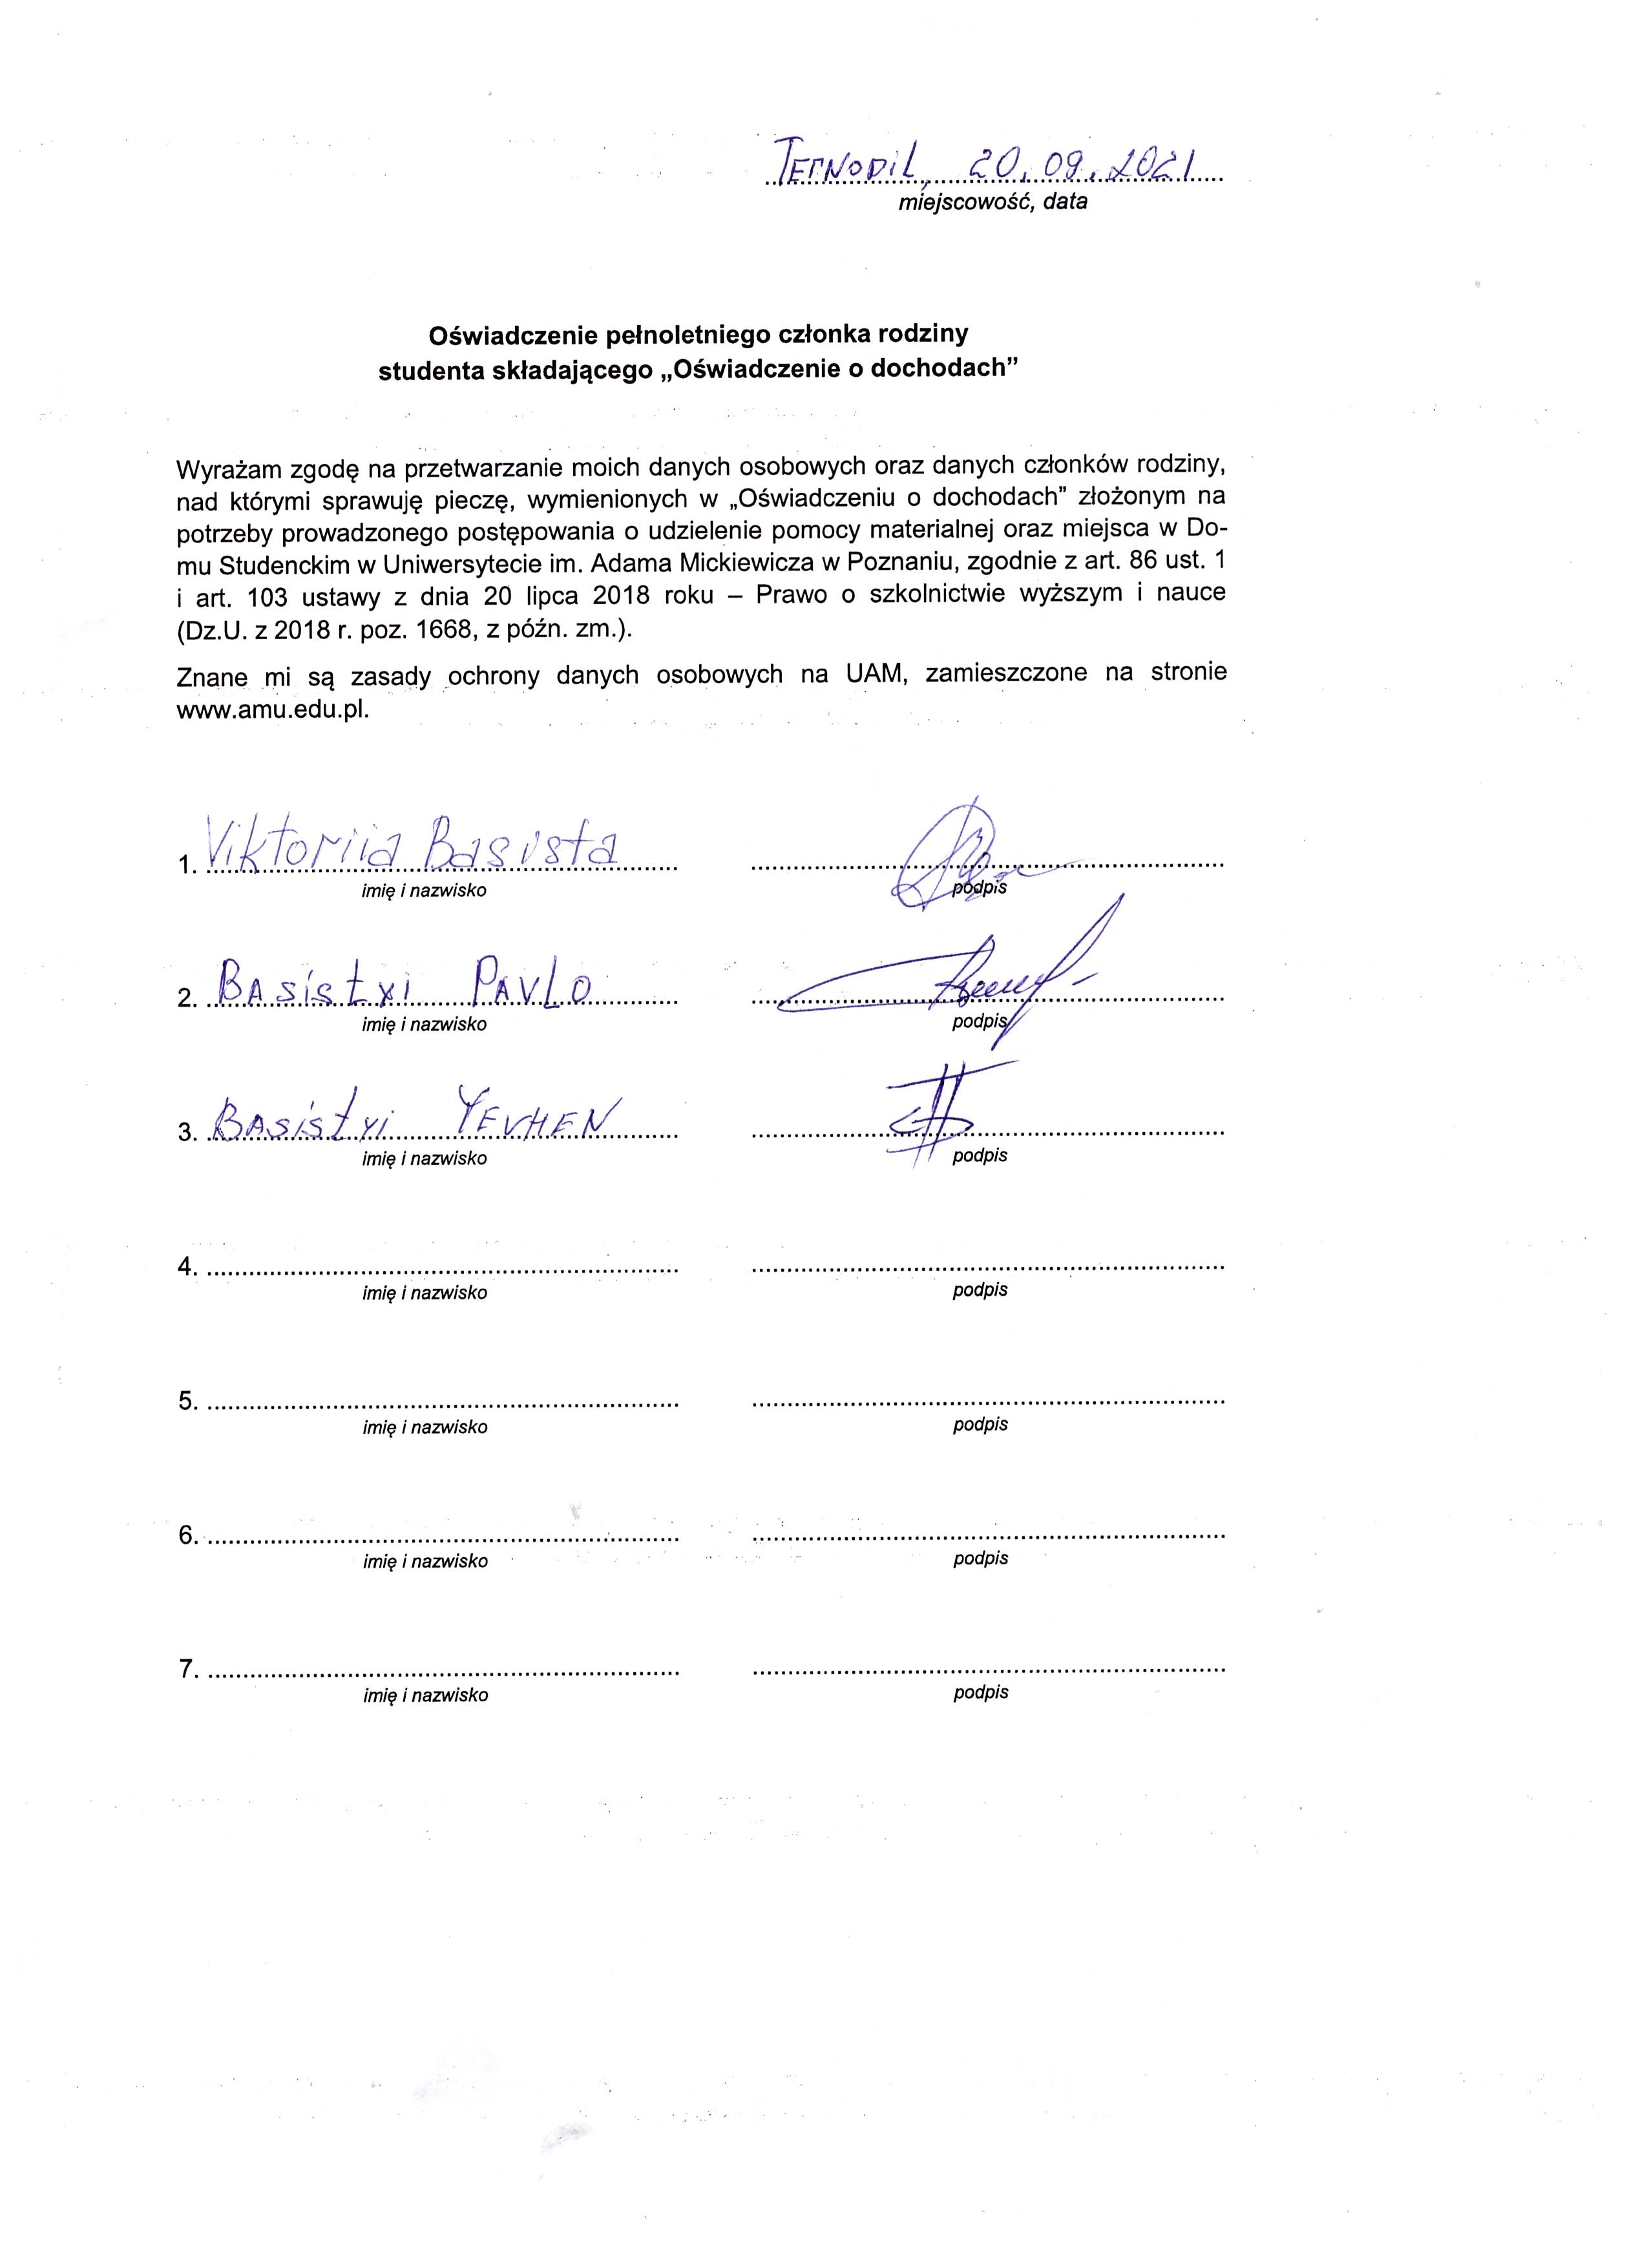 Ternopil, 20.09.2021
miejscowość, data
Oświadczenie pełnoletniego członka rodziny
studenta składającego „Oświadczenie o dochodach”
Wyrażam zgodę na przetwarzanie moich danych osobowych oraz danych członków rodziny,
nad którymi sprawuję pieczę, wymienionych w „Oświadczeniu o dochodach” złożonym na
potrzeby prowadzonego postępowania o udzielenie pomocy materialnej oraz miejsca w Do-
mu Studenckim w Uniwersytecie im. Adama Mickiewicza w Poznaniu, zgodnie z art. 86 ust. 1
i art. 103 ustawy z dnia 20 lipca 2018 roku – Prawo o szkolnictwie wyższym i nauce
(Dz.U. z 2018 r. poz. 1668, z późn. zm.).
Znane mi są zasady ochrony danych osobowych na UAM, zamieszczone na stronie
www.amu.edu.pl.
1. Viktoriia Basista
imię i nazwisko podpis
2. Basistyi Pavlo
imię i nazwisko podpis
3. Basistyi Yevhen
imię i nazwisko podpis
4.
imię i nazwisko podpis
5.
imię i nazwisko podpis
6.
imię i nazwisko podpis
7.
imię i nazwisko podpis